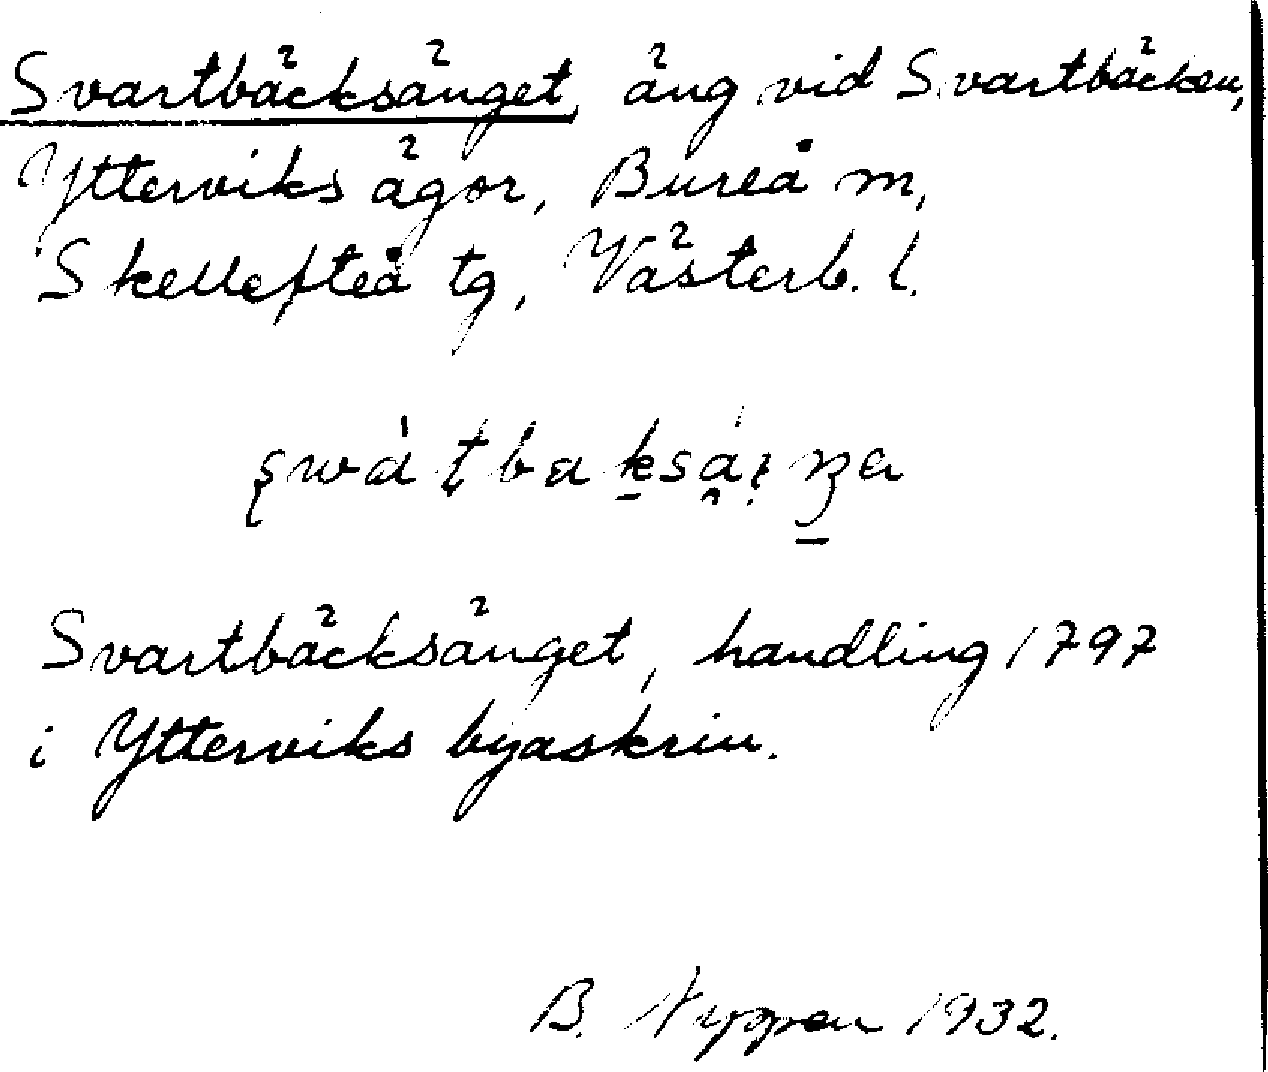 Svartbäcksänget, äng vid Svartbäcken,
Ytterviks ägor, Bureå m,
Skellefteå tg, Västerb. l.
Svartbäcksänget, handling 1797
i Ytterviks byaskrin.
B. 1932.